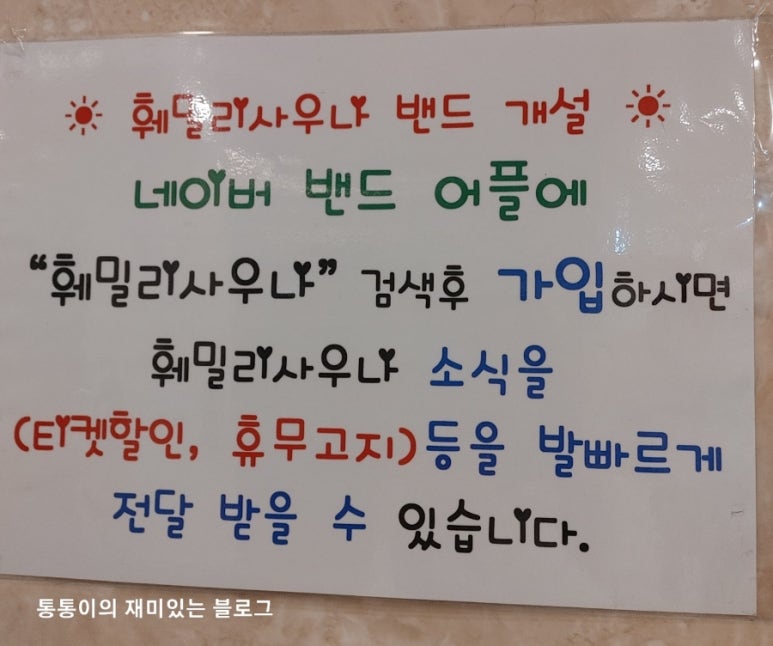 ☀ 훼밀리사우나 밴드 개설 ☀
네이버 밴드 어플에
“훼밀리사우나” 검색후 가입하시면
훼밀리사우나 소식을
(티켓할인, 휴무고지)등을 발빠르게
전달 받을 수 있습니다.
통통이의 재미있는 블로그